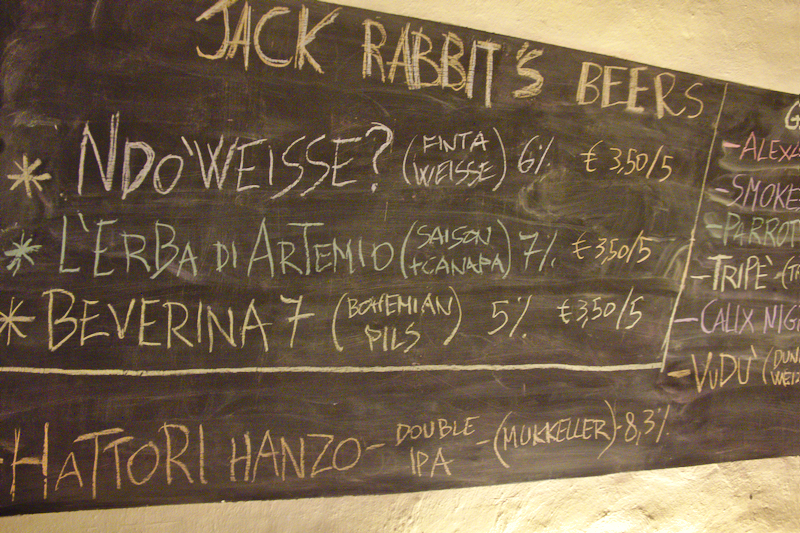 JACK RABBIT'S BEERS
* NDO'WEISSE? (FINTA WEISSE) 6% € 3,50/5
* L'ERBA DI ARTEMIO (SAISON +CANAPA) 7% € 3,50/5
* BEVERINA 7 (BOHEMIAN PILS) 5% € 3,50/5
HATTORI HANZO - DOUBLE IPA - (MIKKELLER) - 8,3%
- ALEXA
- SMOKE
- PARROT
- TRIPE' (
- CALIX NIG
- VUDU' (DUN
WEIZ